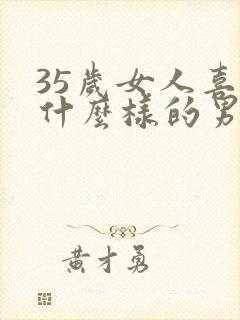 35歲女人喜
什麼樣的男
黃才勇